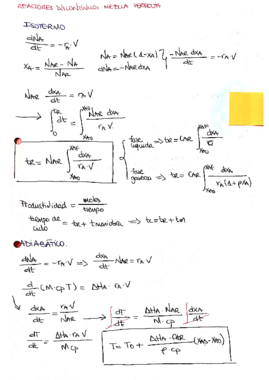 REACTORES DISCONTINUOS MEZCLA PERFECTA
ISOTERMO
dNA/dt = -rA·V
NA = NAR(1-XA)
dNA = -NAR dXA
-NAR dXA/dt = -rA·V
XA = (NAR - NA)/NAR
NAR dXA/dt = rA V
→ ∫₀^tR dt = ∫_XA0^XAF NAR dXA/(rA V)
tR = NAR ∫_XA0^XAF dXA/(rA·V)
fase líquida => tR = CAR ∫_XA0^XAF dXA/rA
fase gaseosa => tR = CAR ∫_XA0^XAF dXA/(rA(1+ρXA))
Productividad = moles/tiempo
tiempo de ciclo = tR + tmaniobra => tc = tR + tm
ADIABÁTICO.
dNA/dt = -rA·V => dXA/dt NAR = rA V
d/dt (M·cp T) = ΔHA·rA·V
dXA/dt = rA·V/NAR
→ ∫dT/dt = ΔHA·NAR/(M·cp) ∫dXA/dt
dT/dt = ΔHA·rA V/(M cp)
T = T0 + ΔHA·CAR/(ρ·cp) (XA0 - XA0)